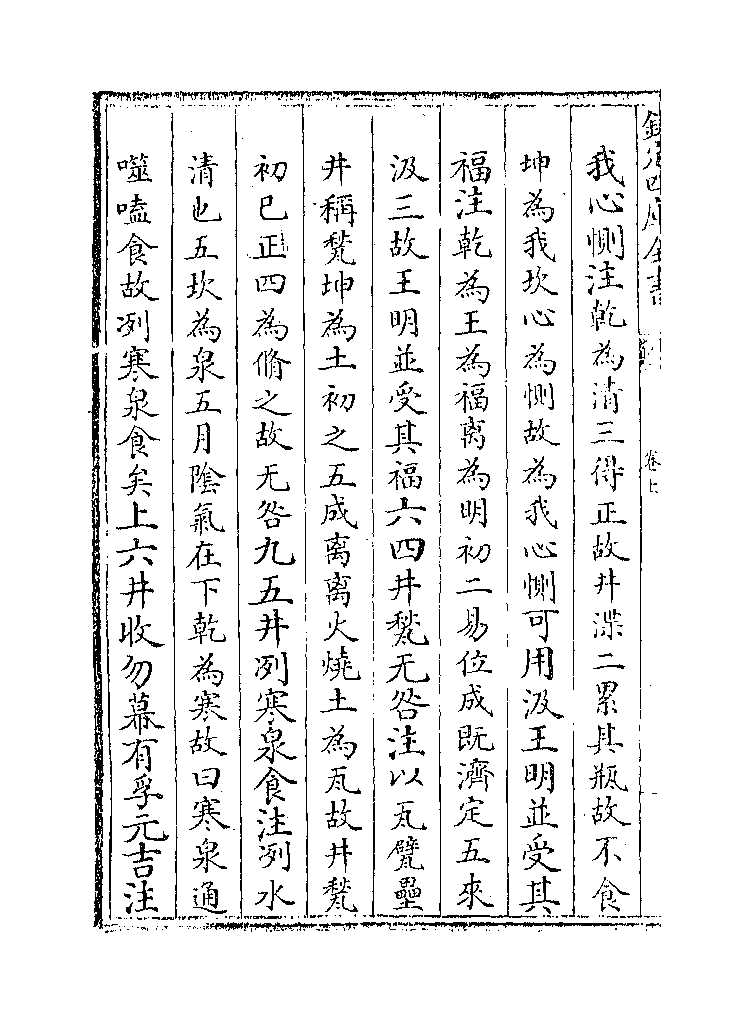 欽定四庫全書
卷上
我心惻注乾為清三得正故井渫二累其瓶故不食
坤為我坎心為惻故為我心惻可用汲王明並受其
福注乾為王為福离為明初二易位成既濟定五來
汲三故王明並受其福六四井甃无咎注以瓦甓壘
井稱甃坤為土初之五成离离火燒土為瓦故井甃
初已正四為脩之故无咎九五井冽寒泉食注冽水
清也五坎為泉五月隂氣在下乾為寒故曰寒泉通
噬嗑食故冽寒泉食矣上六井收勿幕有孚元吉注